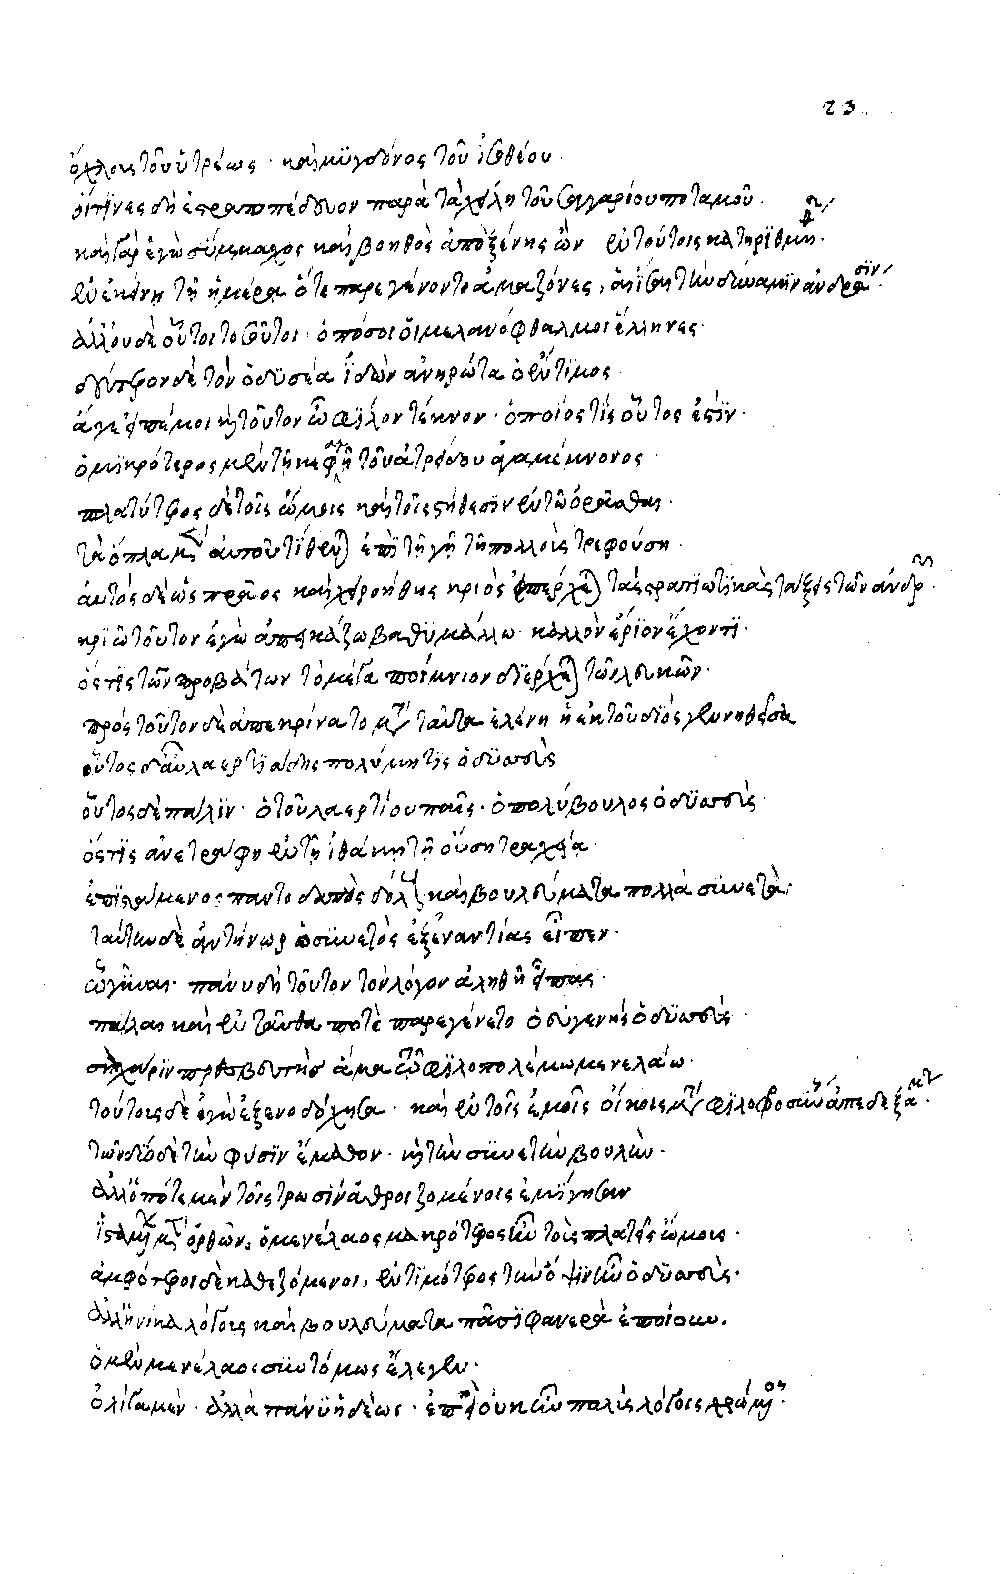 23
ὄχλοις τοῦ ὀτρέως · καὶ μϋγδόνος τοῦ ἰσοθέου ·
οἵτϊνες δὴ ἐστρατοπέδευον παρὰ τὰ χείλη τοῦ σαγγαρίου ποταμοῦ ·
καὶ γὰρ ἐγὼ σύμμαχος καὶ βοηθὸς ἀπὸ ξένης ὢν ἐν τούτοις κατηρϊθμην ·
ἐν ἐκείνη τῆ ἡμέρα ὅτε παρεγένοντο ἀμαζόνες, αἱ ἴσην τὴν δύναμϊν ἀνδράσϊν ·
ἀλλ' οὐδὲ οὗτοι τοσοῦτοι · ὁπόσοι οἱ μελανόφθαλμοι ἕλληνες ·
δεύτερον δὲ τὸν ὀδϋσέα ἰδὼν ἀνηρώτα ὁ ἔντϊμος ·
ἄγε εἰπέ μοι κὴ τοῦτον ὦ φϊλον τέκνον · ὁποῖος τϊς οὗτος ἐστϊν ·
ὁ μϊκρότερος μὲν τῆ κεφαλῆ τοῦ ἀτρέου ἀγαμέμνονος ·
πλατύτερος δὲ τοῖς ὤμοις καὶ τοῖς στήθεσϊν ἐν τῶ ὁρᾶσθαι ·
τὰ ὅπλα μὲν αὐτοῦ τίθενται ἐπὶ τῆ γῆ τῆ πολλοὺς τρεφούση ·
αὐτὸς δὲ ὡς πρᾶος καὶ χειροήθης κριὸς ἐπέρχεται τὰς στρατϊωτϊκὰς τάξεις τῶν ἀνδρῶν ·
κριῶ τοῦτον ἐγὼ ἀπεικάζω βαθϋμάλλω · καλλὸν ἔριον ἔχοντϊ ·
ὅς τϊς τῶν προβάτων τὸ μέγα ποίμνιον διέρχεται τῶν λευκῶν ·
πρὸς τοῦτον δὲ ἀπεκρίνατο μετὰ ταῦτα ἑλένη ἡ ἐκ τοῦ διὸς γεννηθεῖσα
οὗτος δ' αὖ λαερτϊάδης πολύμητϊς ὀδϋσσεὺς
οὗτος δὲ πάλϊν · ὁ τοῦ λαερτίου παῖς · ὁ πολύβουλος ὀδϋσσεὺς ·
ὅς τϊς ἀνετράφη ἐν τῆ ἰθάκη τῆ οὔση τραχεία ·
ἐπϊστάμενος παντοδαποὺς δόλους καὶ βουλεύματα πολλὰ σϋνετὰ ·
ταύτην δὲ ἀντήνωρ ὁ σϋνετὸς ἐξεναντίας εἶπεν ·
ὦ γῦναι · πάνυ δὴ τοῦτον τὸν λόγον ἀληθῆ εἶπας ·
πάλαι καὶ ἐνταῦθα ποτὲ παρεγένετο ὁ εὐγενὴς ὀδϋσσεὺς ·
σὴν χάριν πρεσβευτὴς ἅμα τῶ φϊλοπολέμω μενελάω ·
τούτοις δὲ ἐγὼ ἐξενοδόχησα · καὶ ἐν τοῖς ἐμοῖς οἴκοις μετὰ φϊλοφροσύνην ἀπεδεξάμην ·
τῶν δύο δὲ τὴν φύσϊν ἔμαθον · κὴ τὴν σϋνετὴν βουλὴν ·
ἀλλ' ὁπότε μὲν τοῖς τρωσὶν ἀθροιζομένοις ἐμίγησαν
ϊσταμένων μὲν ὀρθῶν, ὁ μενέλαος μακρότερος ἦν τοῖς πλατέσι ὤμοις ·
ἀμφότεροι δὲ καθεζόμενοι, ἐντιμότερος τὴν ὄψϊν ἦν ὁ ὀδϋσσεὺς ·
ἀλλ' ἡνίκα λόγοις καὶ βουλεύματα πᾶσϊ φανερὰ ἐποίουν.
ὁ μὲν μενέλαος σϋντόμως ἔλεγεν ·
ὀλίγα μὲν · ἀλλὰ πάνϋ ἡδέως · ἐπεὶ οὐκ ἦν πολλοῖς λόγοις χρώμενος ·